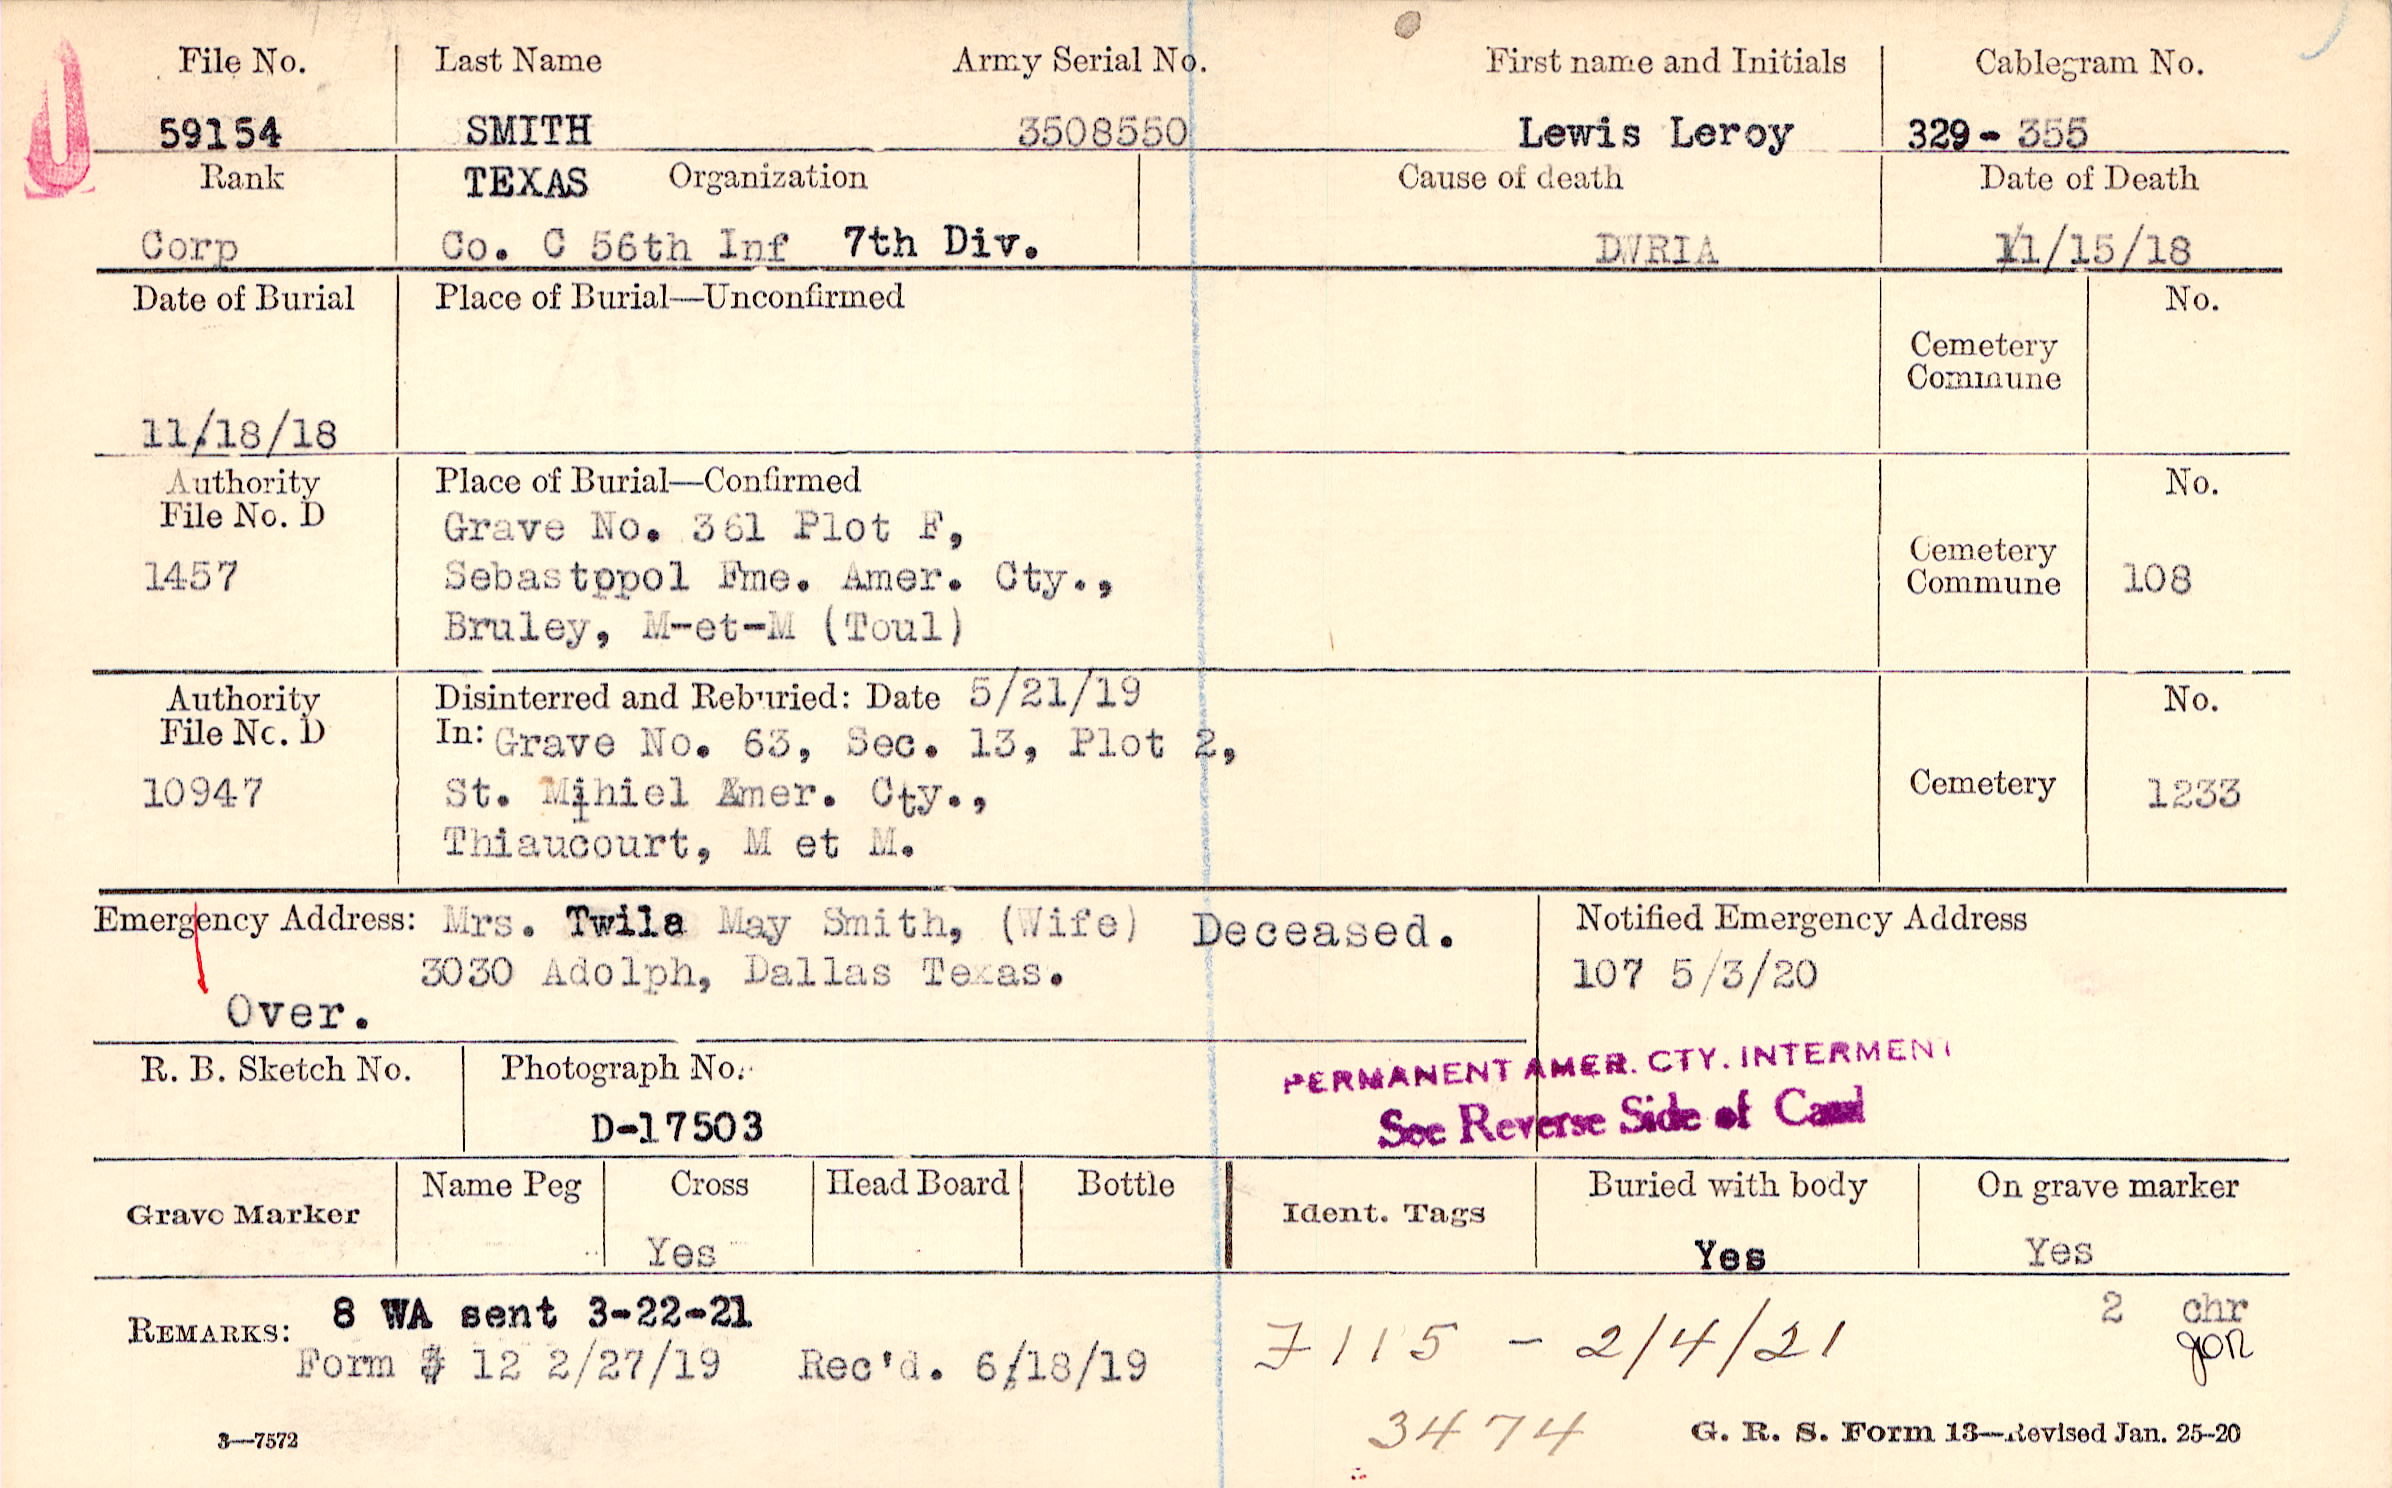 File No. Last Name Army Serial No. First name and Initials Cablegram No.
59154 SMITH 3508550 Lewis Leroy 329- 355
Rank TEXAS Organization Cause of death Date of Death
Corp Co. C 56th Inf 7th Div. DWRIA 11/15/18
Date of Burial Place of Burial—Unconfirmed No.
Cemetery
Commune
11/18/18
Authority Place of Burial—Confirmed No.
File No. D
Grave No. 361 Plot F,
Cemetery
1457 Sebastopol Fme. Amer. Cty., Commune 108
Bruley, M-et-M (Toul)
Authority Disinterred and Reburied: Date 5/21/19 No.
File No. D In: Grave No. 63, Sec. 13, Plot 2,
10947 St. Mihiel Amer. Cty., Cemetery 1233
Thiaucourt, M et M.
Emergency Address: Mrs. Twila May Smith, (Wife) Deceased. Notified Emergency Address
3030 Adolph, Dallas Texas. 107 5/3/20
Over.
R. B. Sketch No. Photograph No. PERMANENT AMER. CTY. INTERMENT
D-17503 See Reverse Side of Card
Grave Marker Name Peg Cross Head Board Bottle Ident. Tags Buried with body On grave marker
Yes Yes Yes
REMARKS: 8 WA sent 3-22-21 2 chr
Form 12 2/27/19 Rec'd. 6/18/19 7115 - 2/4/21 gon
3474
3—7572 G. R. S. Form 13—Revised Jan. 25-20